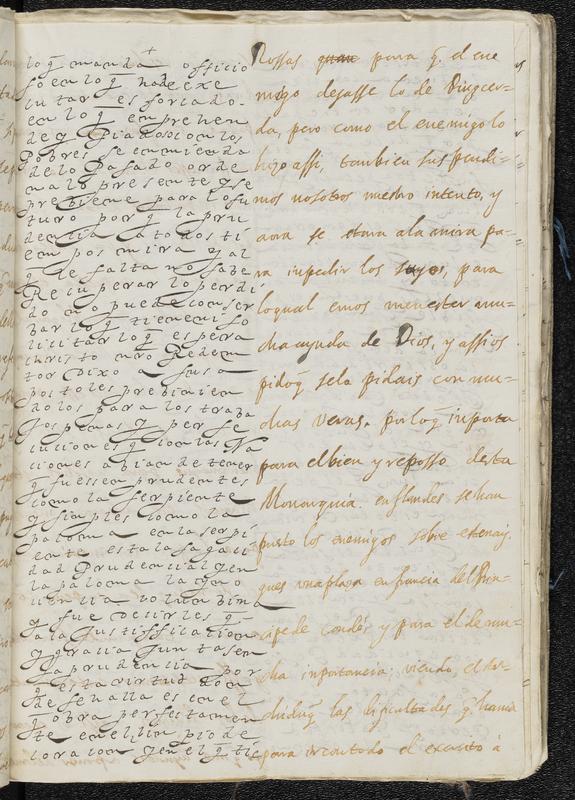 lo q̃ manda officio
so en lo q̃ ha de exe
cutar esforçado
en lo q̃ emprehen
de y Piadoso con los
Pobres se enmienda
de lo Pasado orde
na lo presente y se
prebiene para lo fu
turo por q̃ la pru
dencia a todos ti
empos mira y al
q̃ le falta no sabe
Recuperar lo perdi
do no puede conser
bar lo q̃ tiene ni so
licitar lo q̃ espera
christo nro Redem
tor Dixo a sus a
postoles prebinien
dolos para los traba
jos penas y per se
cuciones q̃ con las Na
ciones abian de tener
q̃ fuessen prudentes
como la serpiente
y simples como la
paloma en la serpi
ente esta la sagaci
dad Prudencial y en
la paloma la yno
cencia columbina
y fue decirles q̃
a la Justifficacion
y gracia Juntasen
la prudencia por
q̃ esta virtud don
de se halla es en el
q̃ obra perfectamen
te en el fin pio de
loracion y en el q̃ tie
nossas para q̃. el ene
migo dejasse lo de Puigcer-
da, pero como el enemigo lo
hizo assi, tambien suspendi-
mos nosotros nuestro intento, y
aora se estara ala mira pa-
ra impedir los suyos, para
loqual emos menester mu-
cha ayuda de Dios, y assi os
pido q̃ se la pidais con mu-
chas veras, por lo q̃ importa
para el bien y reposso desta
Monarquia. en flandes se han
puesto los enemigos sobre
ques una plaza en francia del Prin-
cipe de condés y para el de mu-
cha importancia; viendo, el Ar-
chiduq̃ las dificultades q̃ havia
para el exercito á